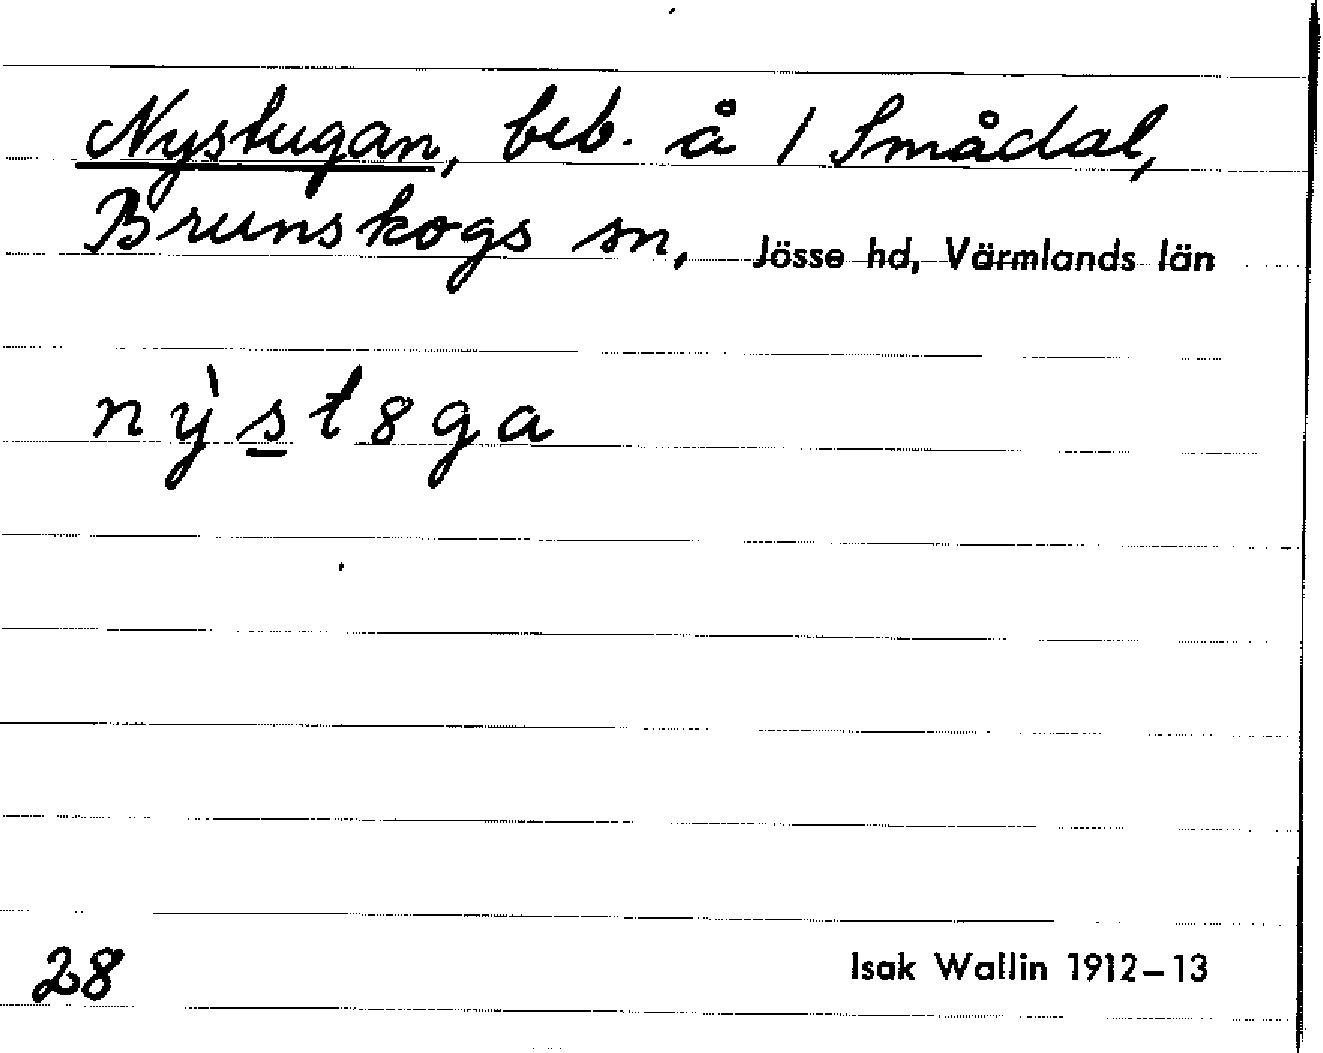 Nystugan, beb. å 1 Smådal,
Brunskogs sn, Jösse hd, Värmlands län
ny̆̀st8ga
28
Isak Wallin 1912–13